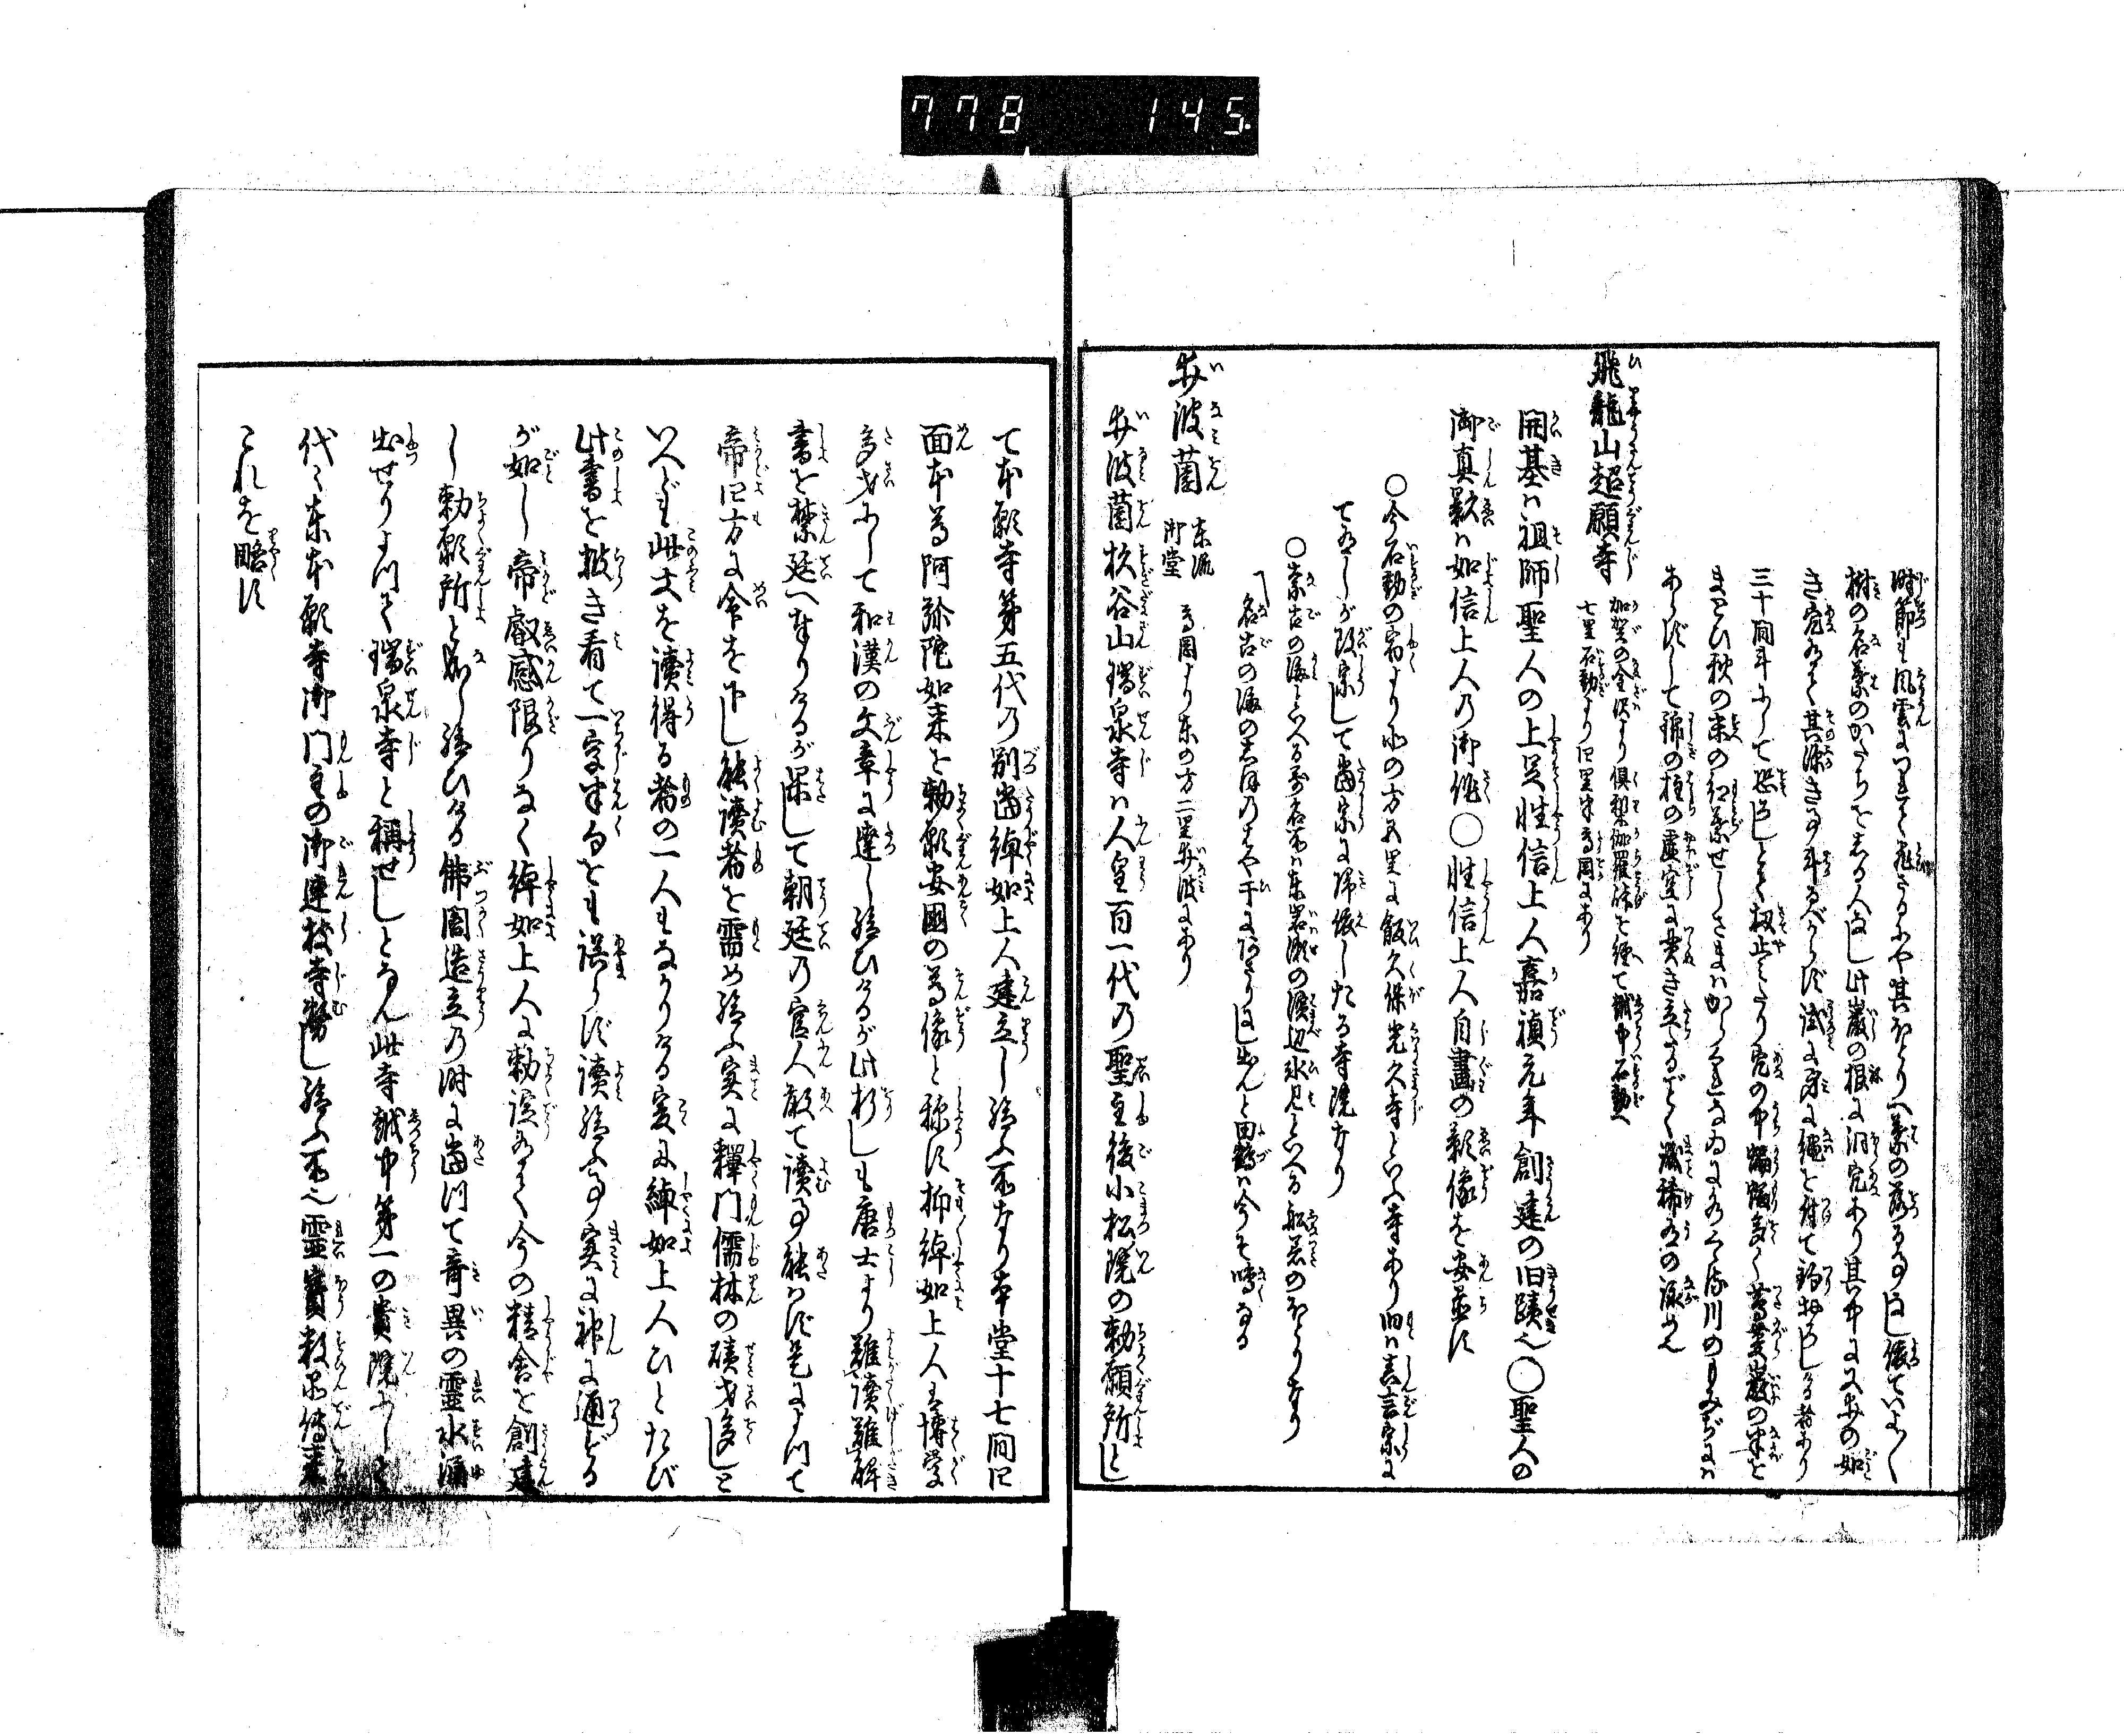 778 145
時節も風雲につれて飛さるにや其ほとりへ葉の落る事なし僥ていよ〳〵
樹の名葉のかたちをしる人なし此巌の根に洞穴あり其中に又井の如
き穴ありて其深き事斗るべからず試に序に縄を付て釣おろしゝ者あり
三十間斗にして恐ろしとて扨止みたり穴の中蝙蝠多く蔦葉巌の半を
まとひ秋の末の紅葉せしさまハからくれなゐに水くゝる川のもみぢハ
あらずして錦の柱の虚空に貫き立たるごとく誠稀有の詠めなり
飛龍山超願寺 加賀の金沢より倶梨伽羅峠を経て越中石動へ
七里石動より四里半高岡にあり
開基ハ祖師聖人の上足性信上人嘉禎元年創建の旧蹟也○聖人の
御真影ハ如信上人の御作○性信上人自畫の影像を安置す
○今石動の宿より北の方五里に飯久保光久寺といふ寺あり旧ハ真言宗に
てありしが改宗して當宗に帰依したる寺院なり
○奈古の海といへる名所ハ東岩瀬の濱辺氷見といへる船着のほとりなり
名古の海の志ほのはや干にあさりしに出んと田鶴ハ今そ鳴なる
井波薗 東派 御堂 高岡より東の方二里井波にあり
井波薗杉谷山瑞泉寺ハ人皇百一代の聖主後小松院の勅願所とし
て本願寺第五代の別當綽如上人建立し給ふ所なり本堂十七間四
面本尊阿弥陀如来を勅願安國の尊像と称す抑綽如上人ハ博学
多才にして和漢の文章に達し給ひけるが此折しも唐土より難讀難解
書を禁廷へ奉りけるが果して朝廷の官人敢て讀事能ハず是によつて
帝四方に命を下し能讀者を需め給ふ実に釋門儒林の碩才多しと
いへども此文を讀得る者の一人もなかりける爰に綽如上人ひとたび
此書を披き看て一字半句をも誤らず讀給ふ事実に神に通ずる
が如し帝叡感限りなく綽如上人に勅諚ありて今の精舎を創建
し勅願所と成し給ひける佛閣造立の時に當つて奇異の靈水涌
出せりよつて瑞泉寺と稱せしとなん此寺越中第一の貴院にして
代々東本願寺御門主の御連枝寺務し給ふ所也靈寳数品傳来
これを略す